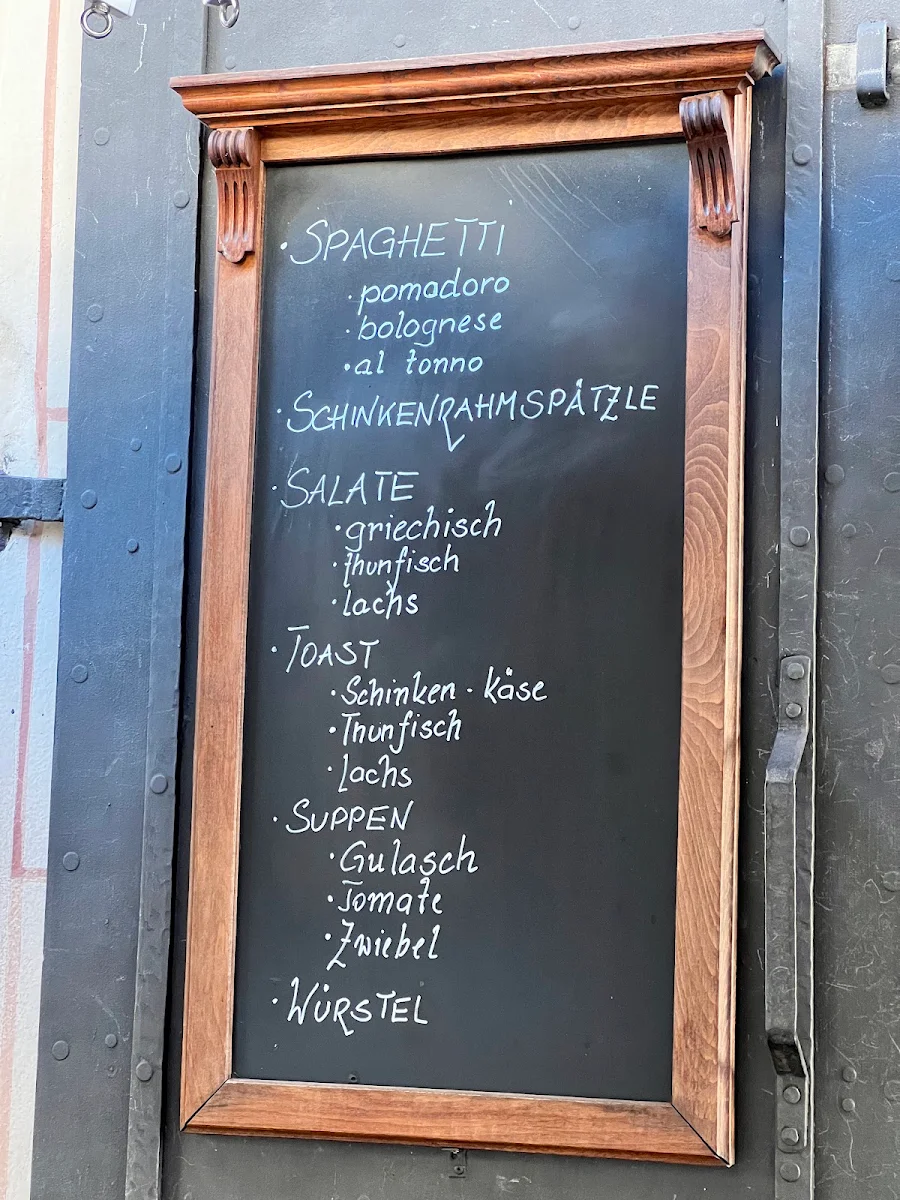 · SPAGHETTI
· pomodoro
· bolognese
· al tonno
· SCHINKENRAHMSPÄTZLE
· SALATE
· griechisch
· thunfisch
· lachs
· TOAST
· Schinken · Käse
· Thunfisch
· Lachs
· SUPPEN
· Gulasch
· Tomate
· Zwiebel
· WÜRSTEL